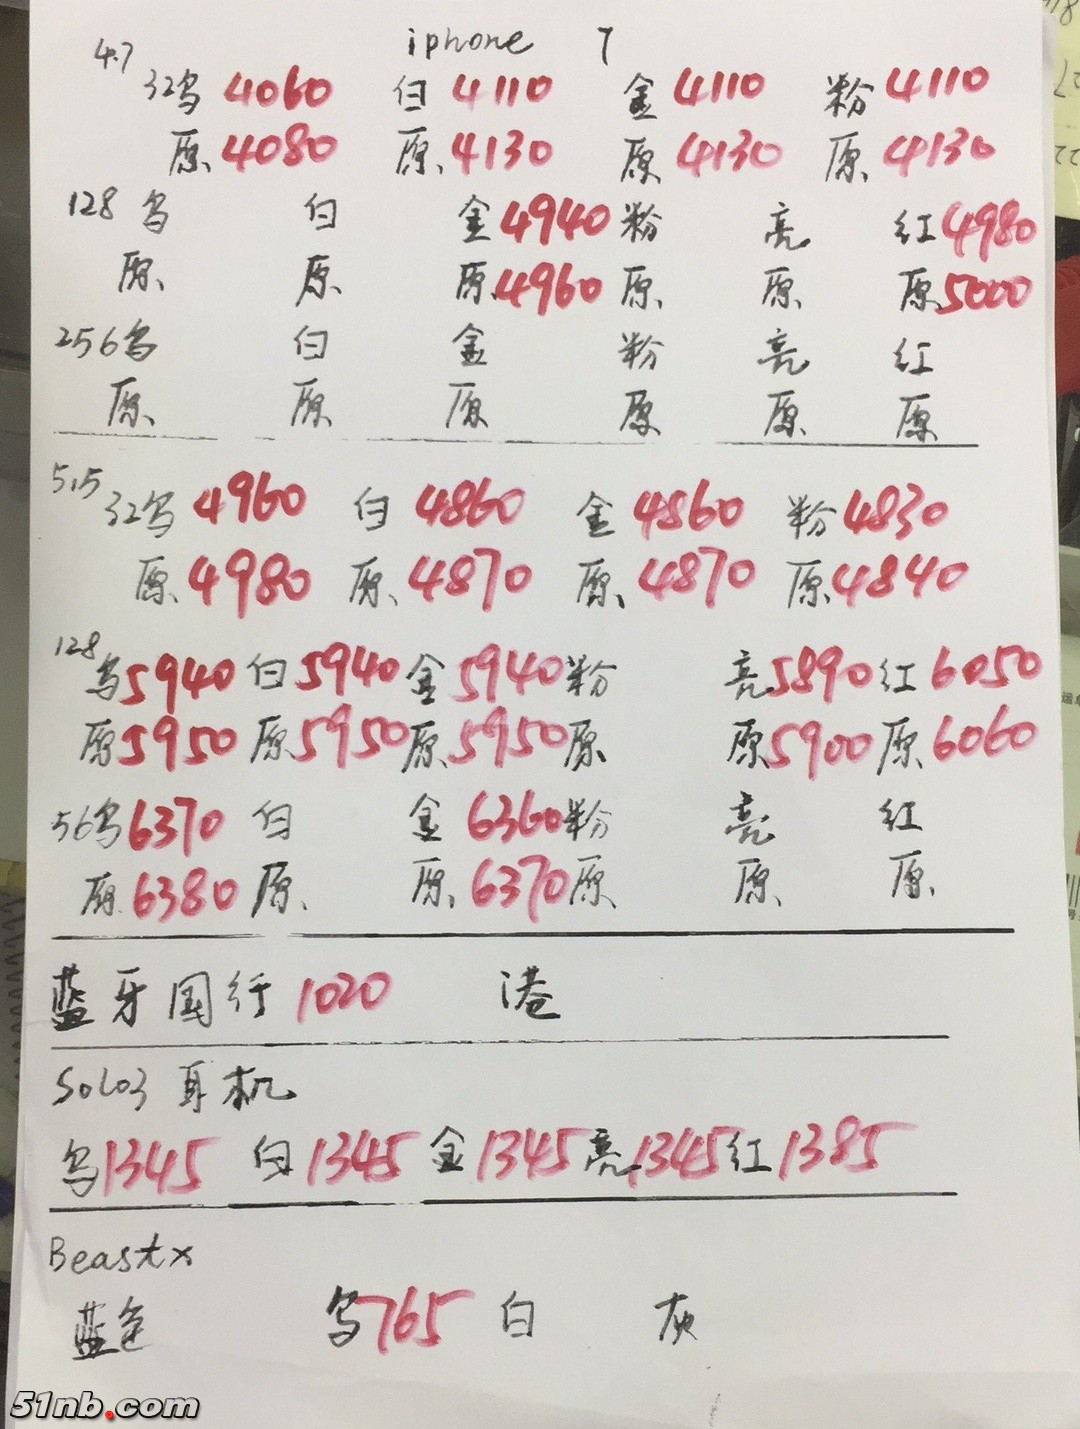 iphone 7
4.7
32乌 4060 白 4110 金 4110 粉 4110
原 4080 原 4130 原 4130 原 4130
128 乌 白 金 4940 粉 亮 红 4980
原 原 原 4960 原 原 原 5000
256乌 白 金 粉 亮 红
原 原 原 原 原 原
5.5
32乌 4960 白 4860 金 4860 粉 4830
原 4980 原 4870 原 4870 原 4840
128
乌 5940 白 5940 金 5940 粉 亮 5890 红 6050
原 5950 原 5950 原 5950 原 原 5900 原 6060
56乌 6370 白 金 6360 粉 亮 红
原 6380 原 原 6370 原 原 原
蓝牙国行 1020 港
Solo3 耳机
乌 1345 白 1345 金 1345 亮 1345 红 1385
Beastx
蓝色 乌 765 白 灰
51nb.com